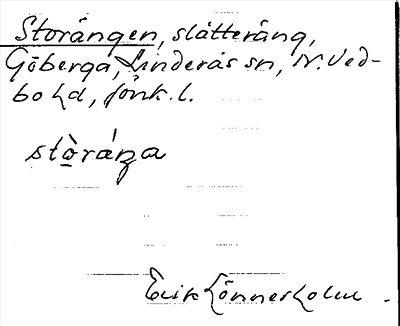 Storängen, slåtteräng,
Göberga, Linderås sn, N. Ved-
bo hd, Jönk. l.
stò̱ráŋa
Erik Lönnerholm